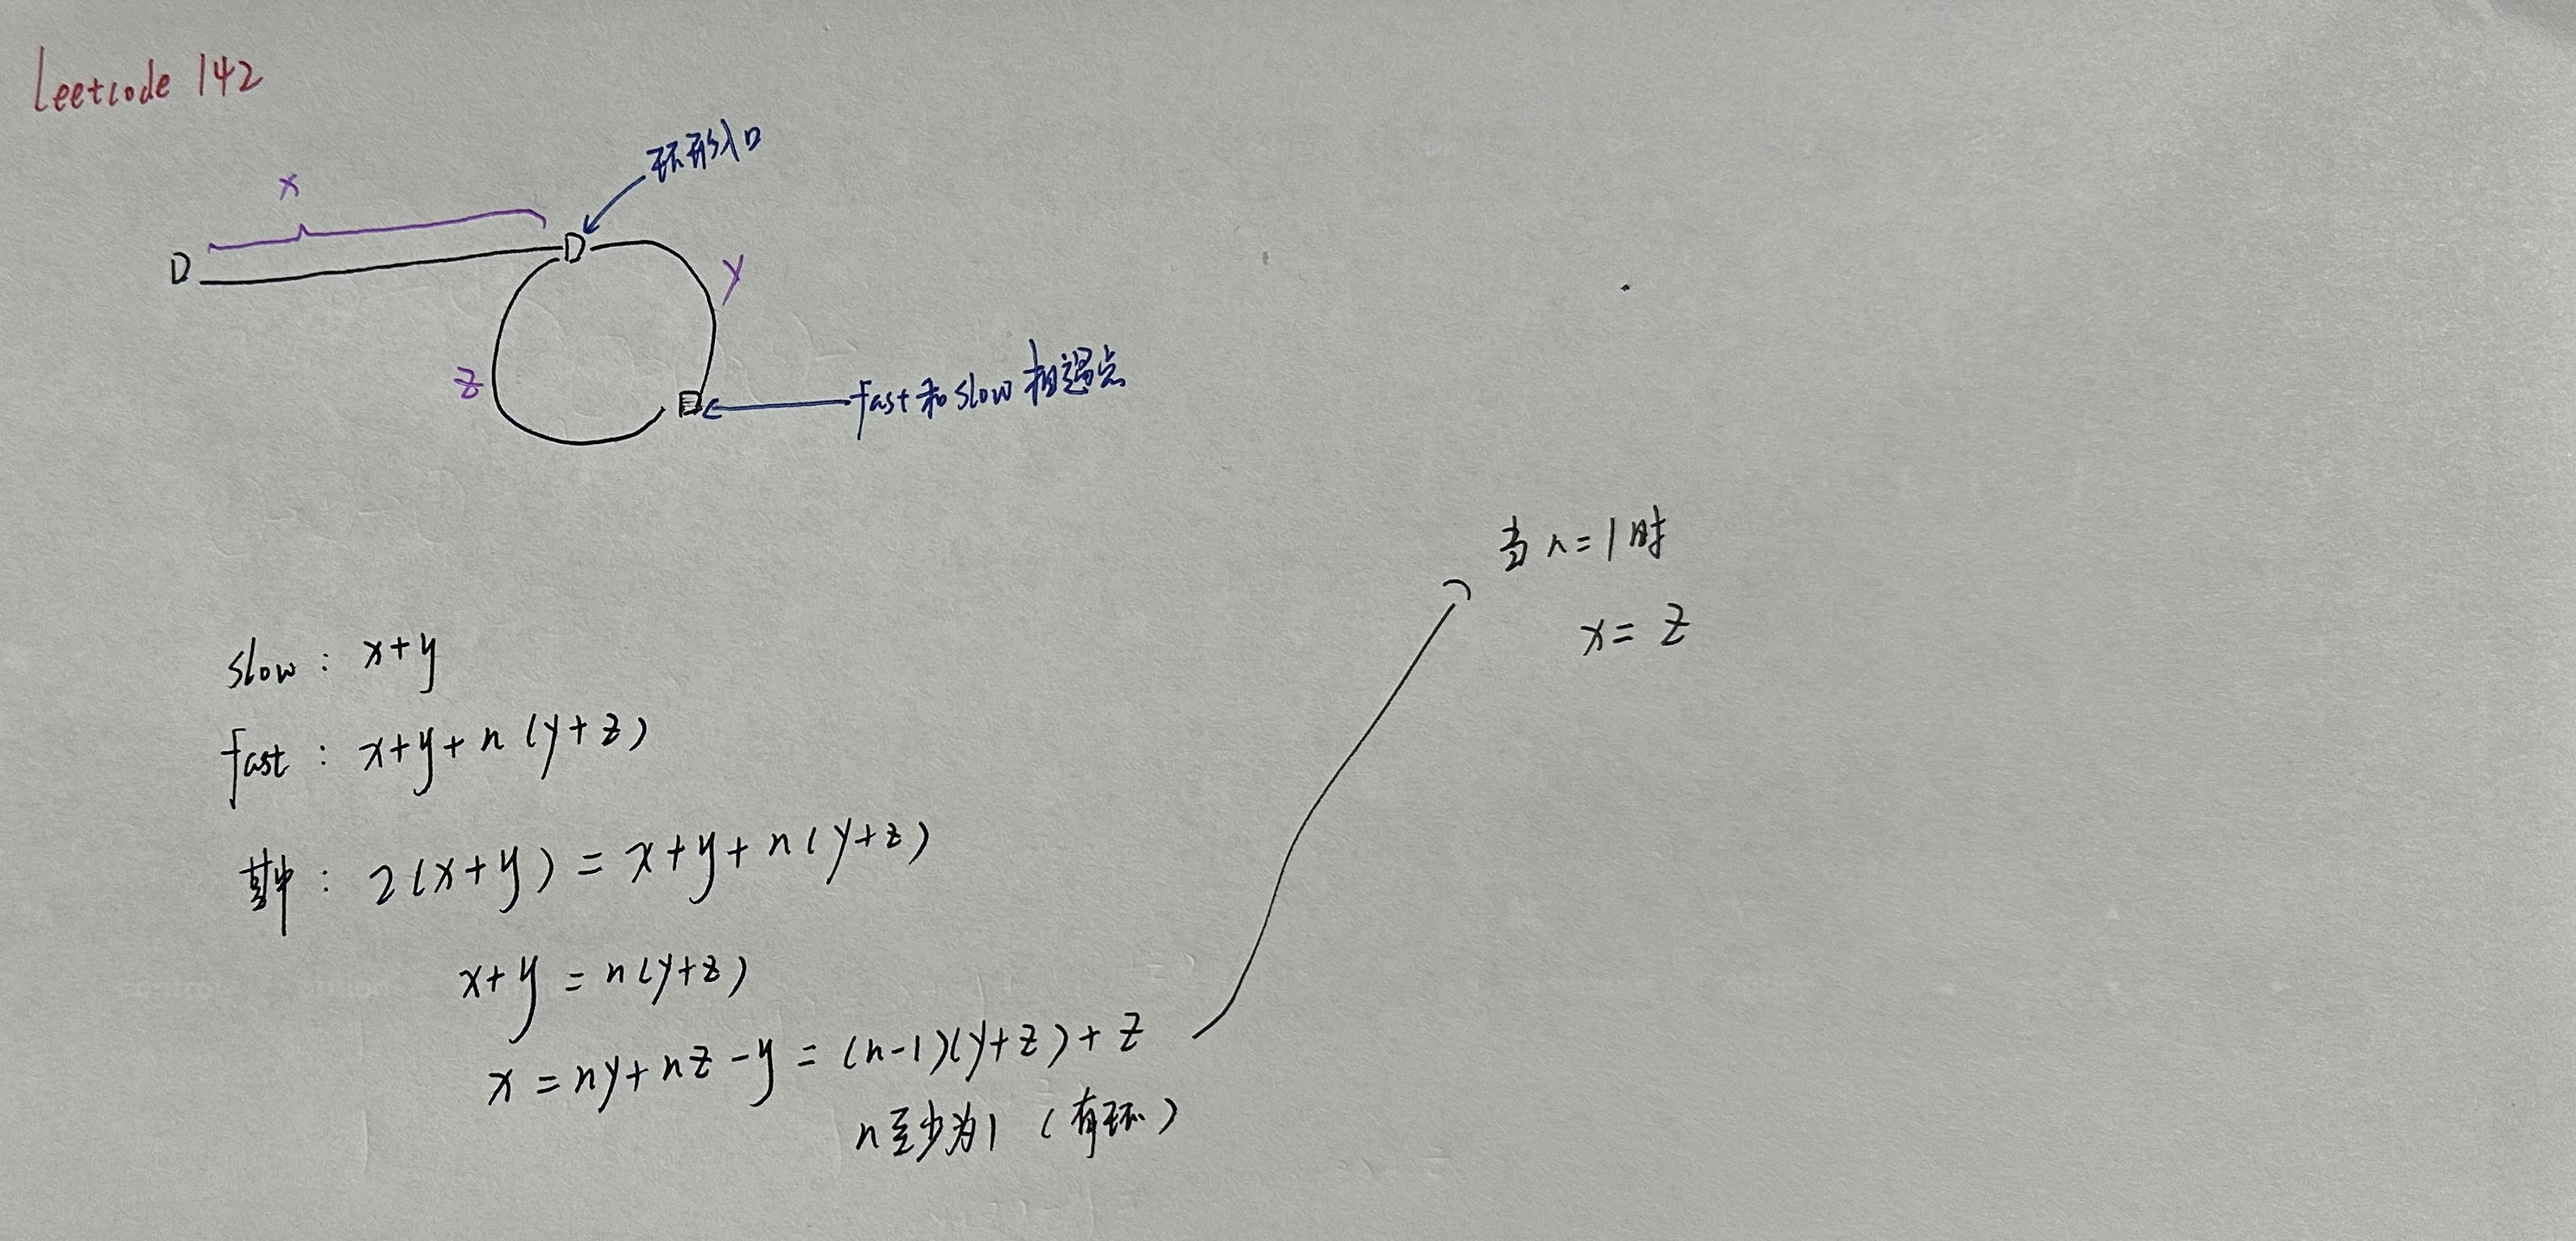 leetcode 142
环形入口
x
y
z
fast和slow相遇点
slow : x+y
fast : x+y+n(y+z)
其中 : 2(x+y) = x+y+n(y+z)
x+y = n(y+z)
x = ny+nz-y = (n-1)(y+z)+z
n至少为1 (有环)
当n=1时
x = z